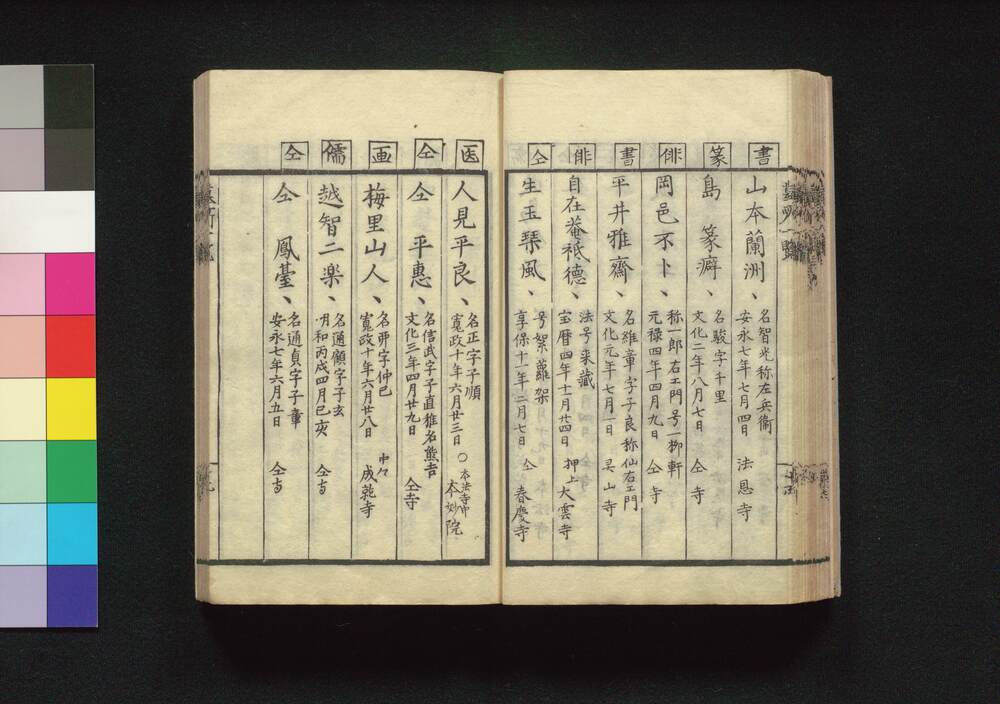 書
山本蘭洲、
名智光称左兵衛
安永七年七月四日
法恩寺
篆
島 篆癖、
名駿字千里
文化二年八月七日
仝 寺
俳
岡邑不卜、
称一郎右エ門号一柳軒
元禄四年四月九日
仝 寺
書
平井雅齋、
名維章字子良称仙右エ門
文化元年七月一日
山寺
俳
自在菴祗德、
法号来藏
宝暦四年十一月廿四日
押上大雲寺
仝
生玉琴風、
号絮蘿架
享保十一年二月七日
仝 春慶寺
医
人見平良、
名正字子順
寛政十年六月廿三日
○本法寺中
本妙院
仝
仝 平惠、
名信武字子直稚名熊吉
文化三年四月廿九日
仝寺
画
梅里山人、
字仲巳
寛政十年六月廿八日
中々
成乾寺
儒
越智二楽、
名通顧字子玄
明和丙戌四月己亥
仝寺
仝
仝 鳳臺、
名通貞字子章
安永七年六月五日
仝寺